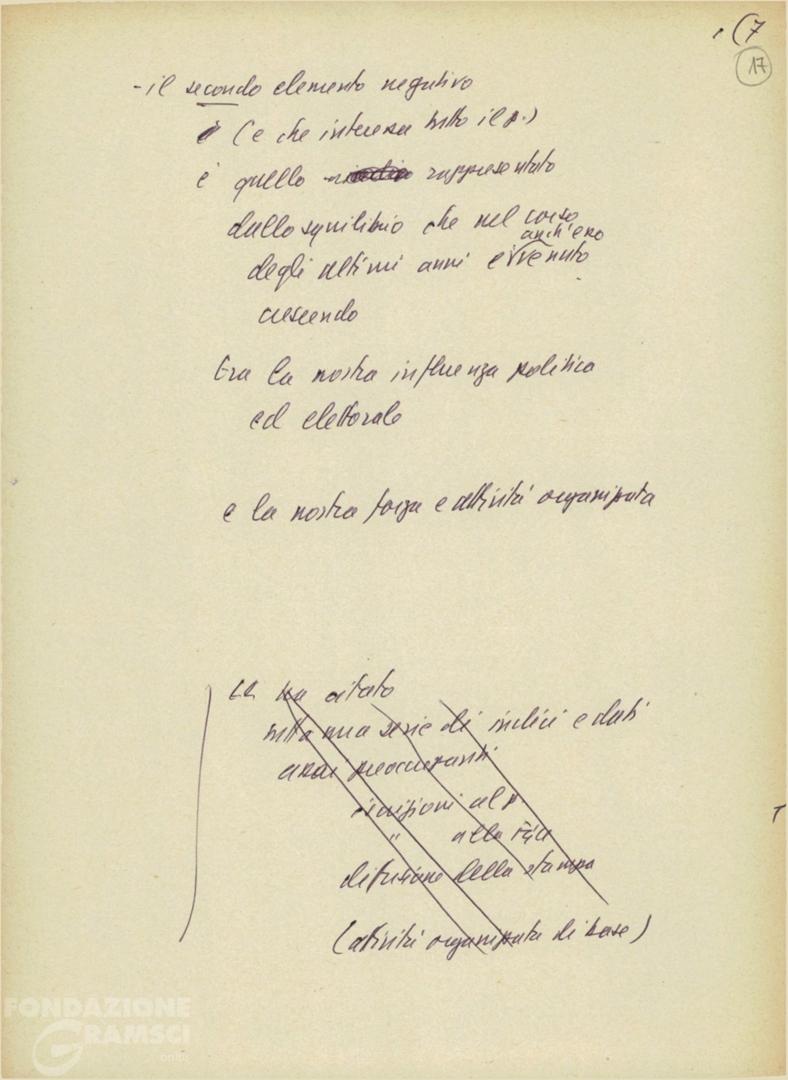 (7
17
- il secondo elemento negativo
è (e che interessa tutto il p.)
è quello rappresentato
dallo squilibrio che nel corso
anch'esso
degli ultimi anni è venuto
crescendo
tra la nostra influenza politica
ed elettorale
e la nostra forza e attività organizzata
ha citato
tutta una serie di indici e dati
assai preoccupanti
iscrizioni al p.
" alla Fgci
difusione della stampa
(attività organizzata di base)
FONDAZIONE
GRAMSCI
onlus